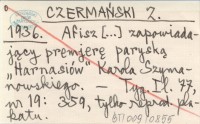 CZERMAŃSKI Z.
1936. Afisz [...] zapowiada-
jący premjerę paryską
„Harnasiów" Karola Szyma-
nowskiego. — Tyg. Il. 77.
nr 19: 359, tylko reprod. pla-
katu.
BTI 009 10855